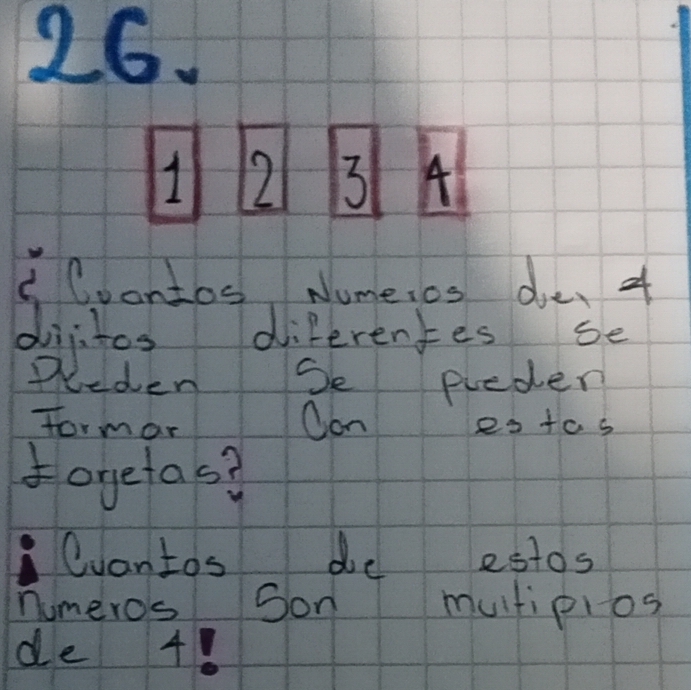 26.
1 2 3 4
¿Cuantos Numeros de 4
dijitos diferentes se
Pueden Se pueden
Formar Con estas
targetas?
¡Cuantos de estos
numeros Son multiplos
de 4!